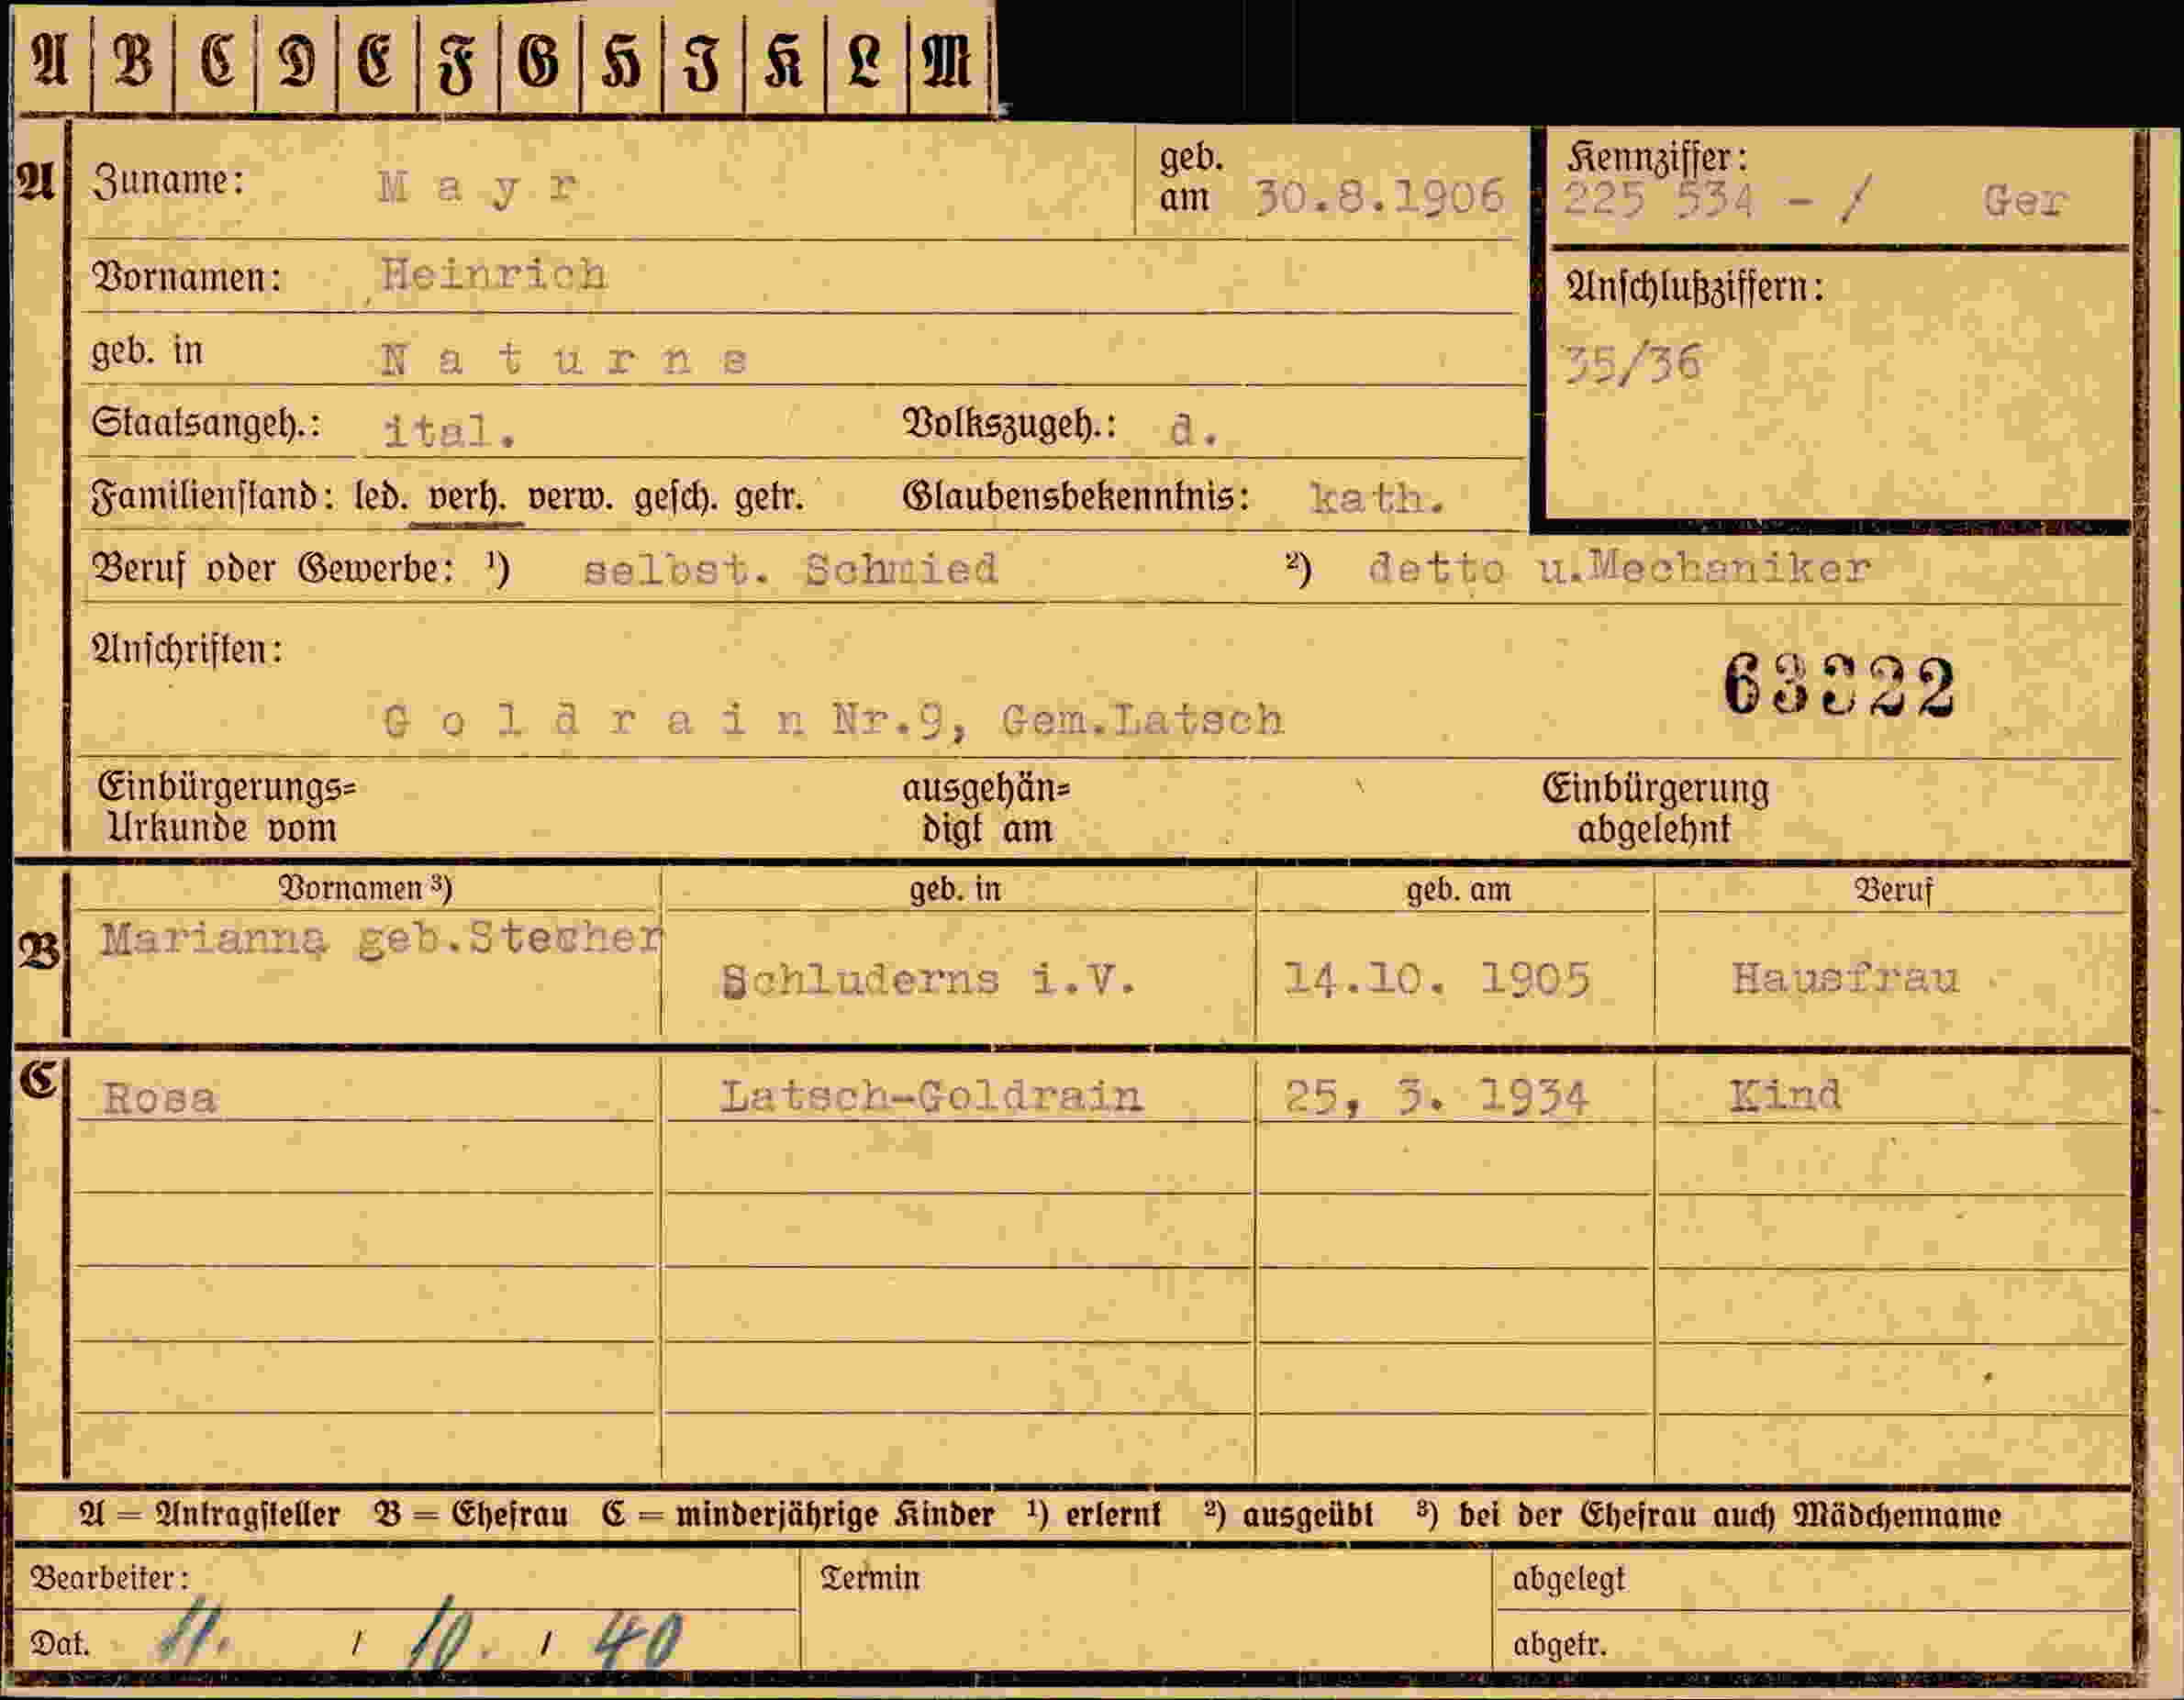 A B C D E F G H I K L M
A Zuname: Mayr geb. am 30.8.1906 Kennziffer: 225 534 - / Ger
Vornamen: Heinrich Anschlußziffern:
geb. in Naturns 35/36
Staatsangeh.: ital. Volkszugeh.: d.
Familienstand: led. verh. verw. gesch. getr. Glaubensbekenntnis: kath.
Beruf oder Gewerbe: 1) selbst. Schmied 2) detto u.Mechaniker
Anschriften: 63322
Goldrain Nr.9, Gem.Latsch
Einbürgerungs= ausgehän= Einbürgerung
Urkunde vom digt am abgelehnt
Vornamen 3) geb. in geb. am Beruf
B Marianna geb.Stecher
Schluderns i.V. 14.10. 1905 Hausfrau
C Rosa Latsch-Goldrain 25, 3. 1934 Kind
A = Antragsteller B = Ehefrau C = minderjährige Kinder 1) erlernt 2) ausgeübt 3) bei der Ehefrau auch Mädchenname
Bearbeiter: Termin abgelegt
Dat. 11. / 10. / 40 abgetr.